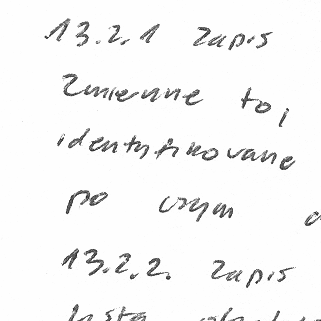 13.2.1 Zapis
Zmienne to,
identyfikowane
po czym
13.2.2. Zapis